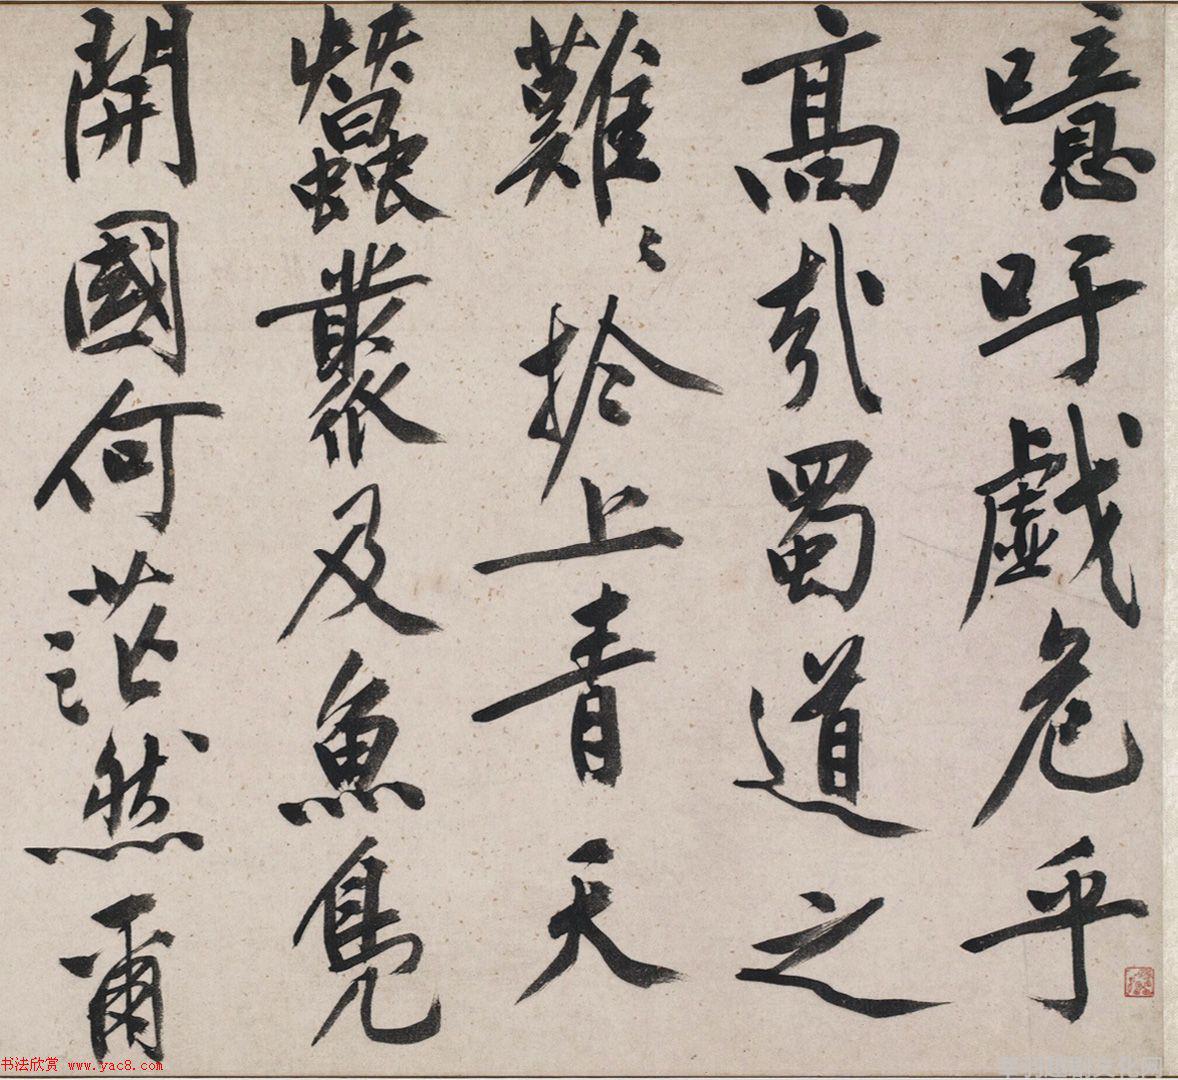 噫吁戲危乎
高哉蜀道之
難〻扵上青天
蠶叢及魚鳧
開國何茫然爾
书法欣赏 www.yac8.com